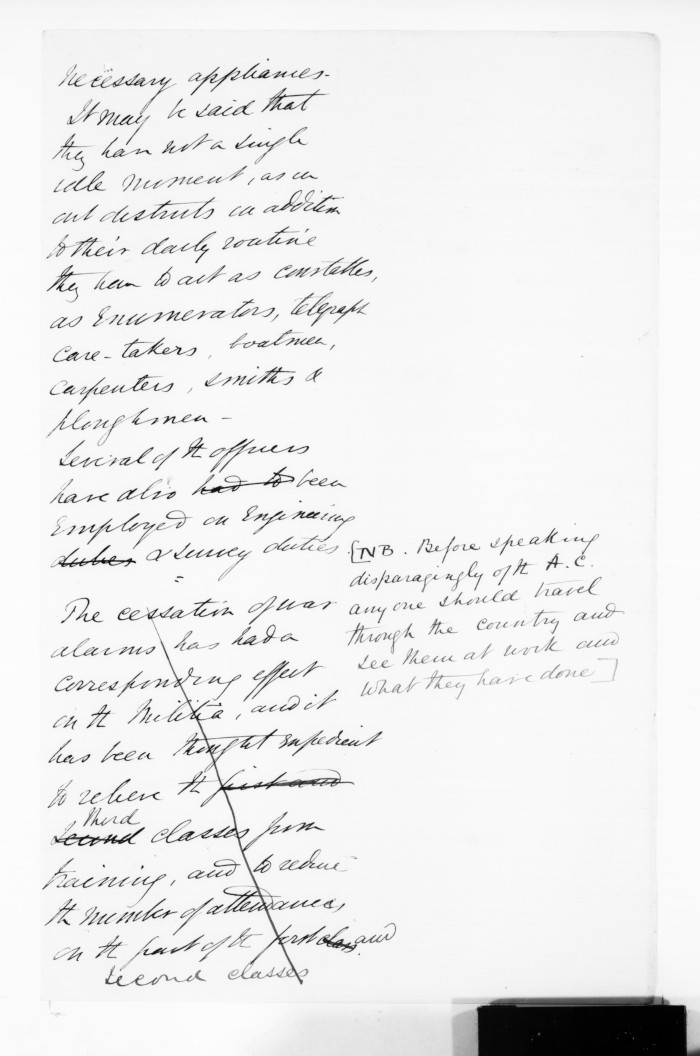 necessary appliances.
It may be said that
they have not a single
idle moment, as in
out districts in addition
to their daily routine
they have to act as constables,
as Enumerators, telegraph
care-takers, boatmen,
carpenters, smiths &
ploughmen -
Several of th officers
have also had to been
Employed on Engineering
duties & survey duties.
The cessation of war
alarms has had a
corresponding effect
on th Militia, and it
has been thought expedient
to relieve th first and
Third
Second classes from
training, and to reduce
th number of attendances,
on th part of th first class and
second classes
[NB. Before speaking
disparagingly of th A.C.
anyone should travel
through the country and
see them at work and
what they have done]